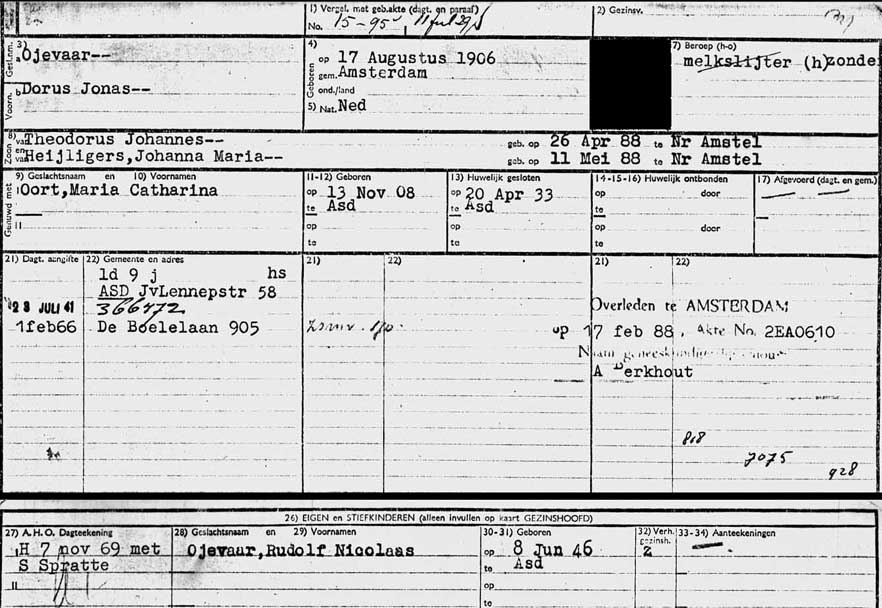 1) Vergel. met geb.akte (dagt. en paraaf)
No. 15-95
2) Gezinsv.
Gesl.nm. 3) a Ojevaar--
Voorn. b Dorus Jonas--
4) Geboren op 17 Augustus 1906
gem. Amsterdam
ond./land
5) Nat. Ned
7) Beroep (h-o)
melkslijter (h)zonde
Zoon 8) van Theodorus Johannes-- geb. op 26 Apr 88 te Nr Amstel
en van Heijligers,Johanna Maria-- geb. op 11 Mei 88 te Nr Amstel
Gehuwd met 9) Geslachtsnaam en 10) Voornamen
I Oort,Maria Catharina
II
11-12) Geboren
op 13 Nov 08
te Asd
op
te
13) Huwelijk gesloten
op 20 Apr 33
te Asd
op
te
14-15-16) Huwelijk ontbonden
op door
te
op door
te
17) Afgevoerd (dagt. en gem.)
21) Dagt. aangifte 22) Gemeente en adres 21) 22) 21) 22)
ld 9 j hs
ASD JvLennepstr 58
23 JULI 41 366472
1feb66 De Boelelaan 905
Overleden te AMSTERDAM
op 17 feb 88, Akte No. 2EA0610
Naam geneeskundige
A Berkhout
818
7075
928
26) EIGEN en STIEFKINDEREN (alleen invullen op kaart GEZINSHOOFD)
27) A.H.O. Dagteekening 28) Geslachtsnaam en 29) Voornamen 30-31) Geboren 32) Verh. gezinsh. 33-34) Aanteekeningen
I H 7 nov 69 met Ojevaar,Rudolf Nicolaas op 8 Jun 46 Z
S Spratte te Asd
II op
te